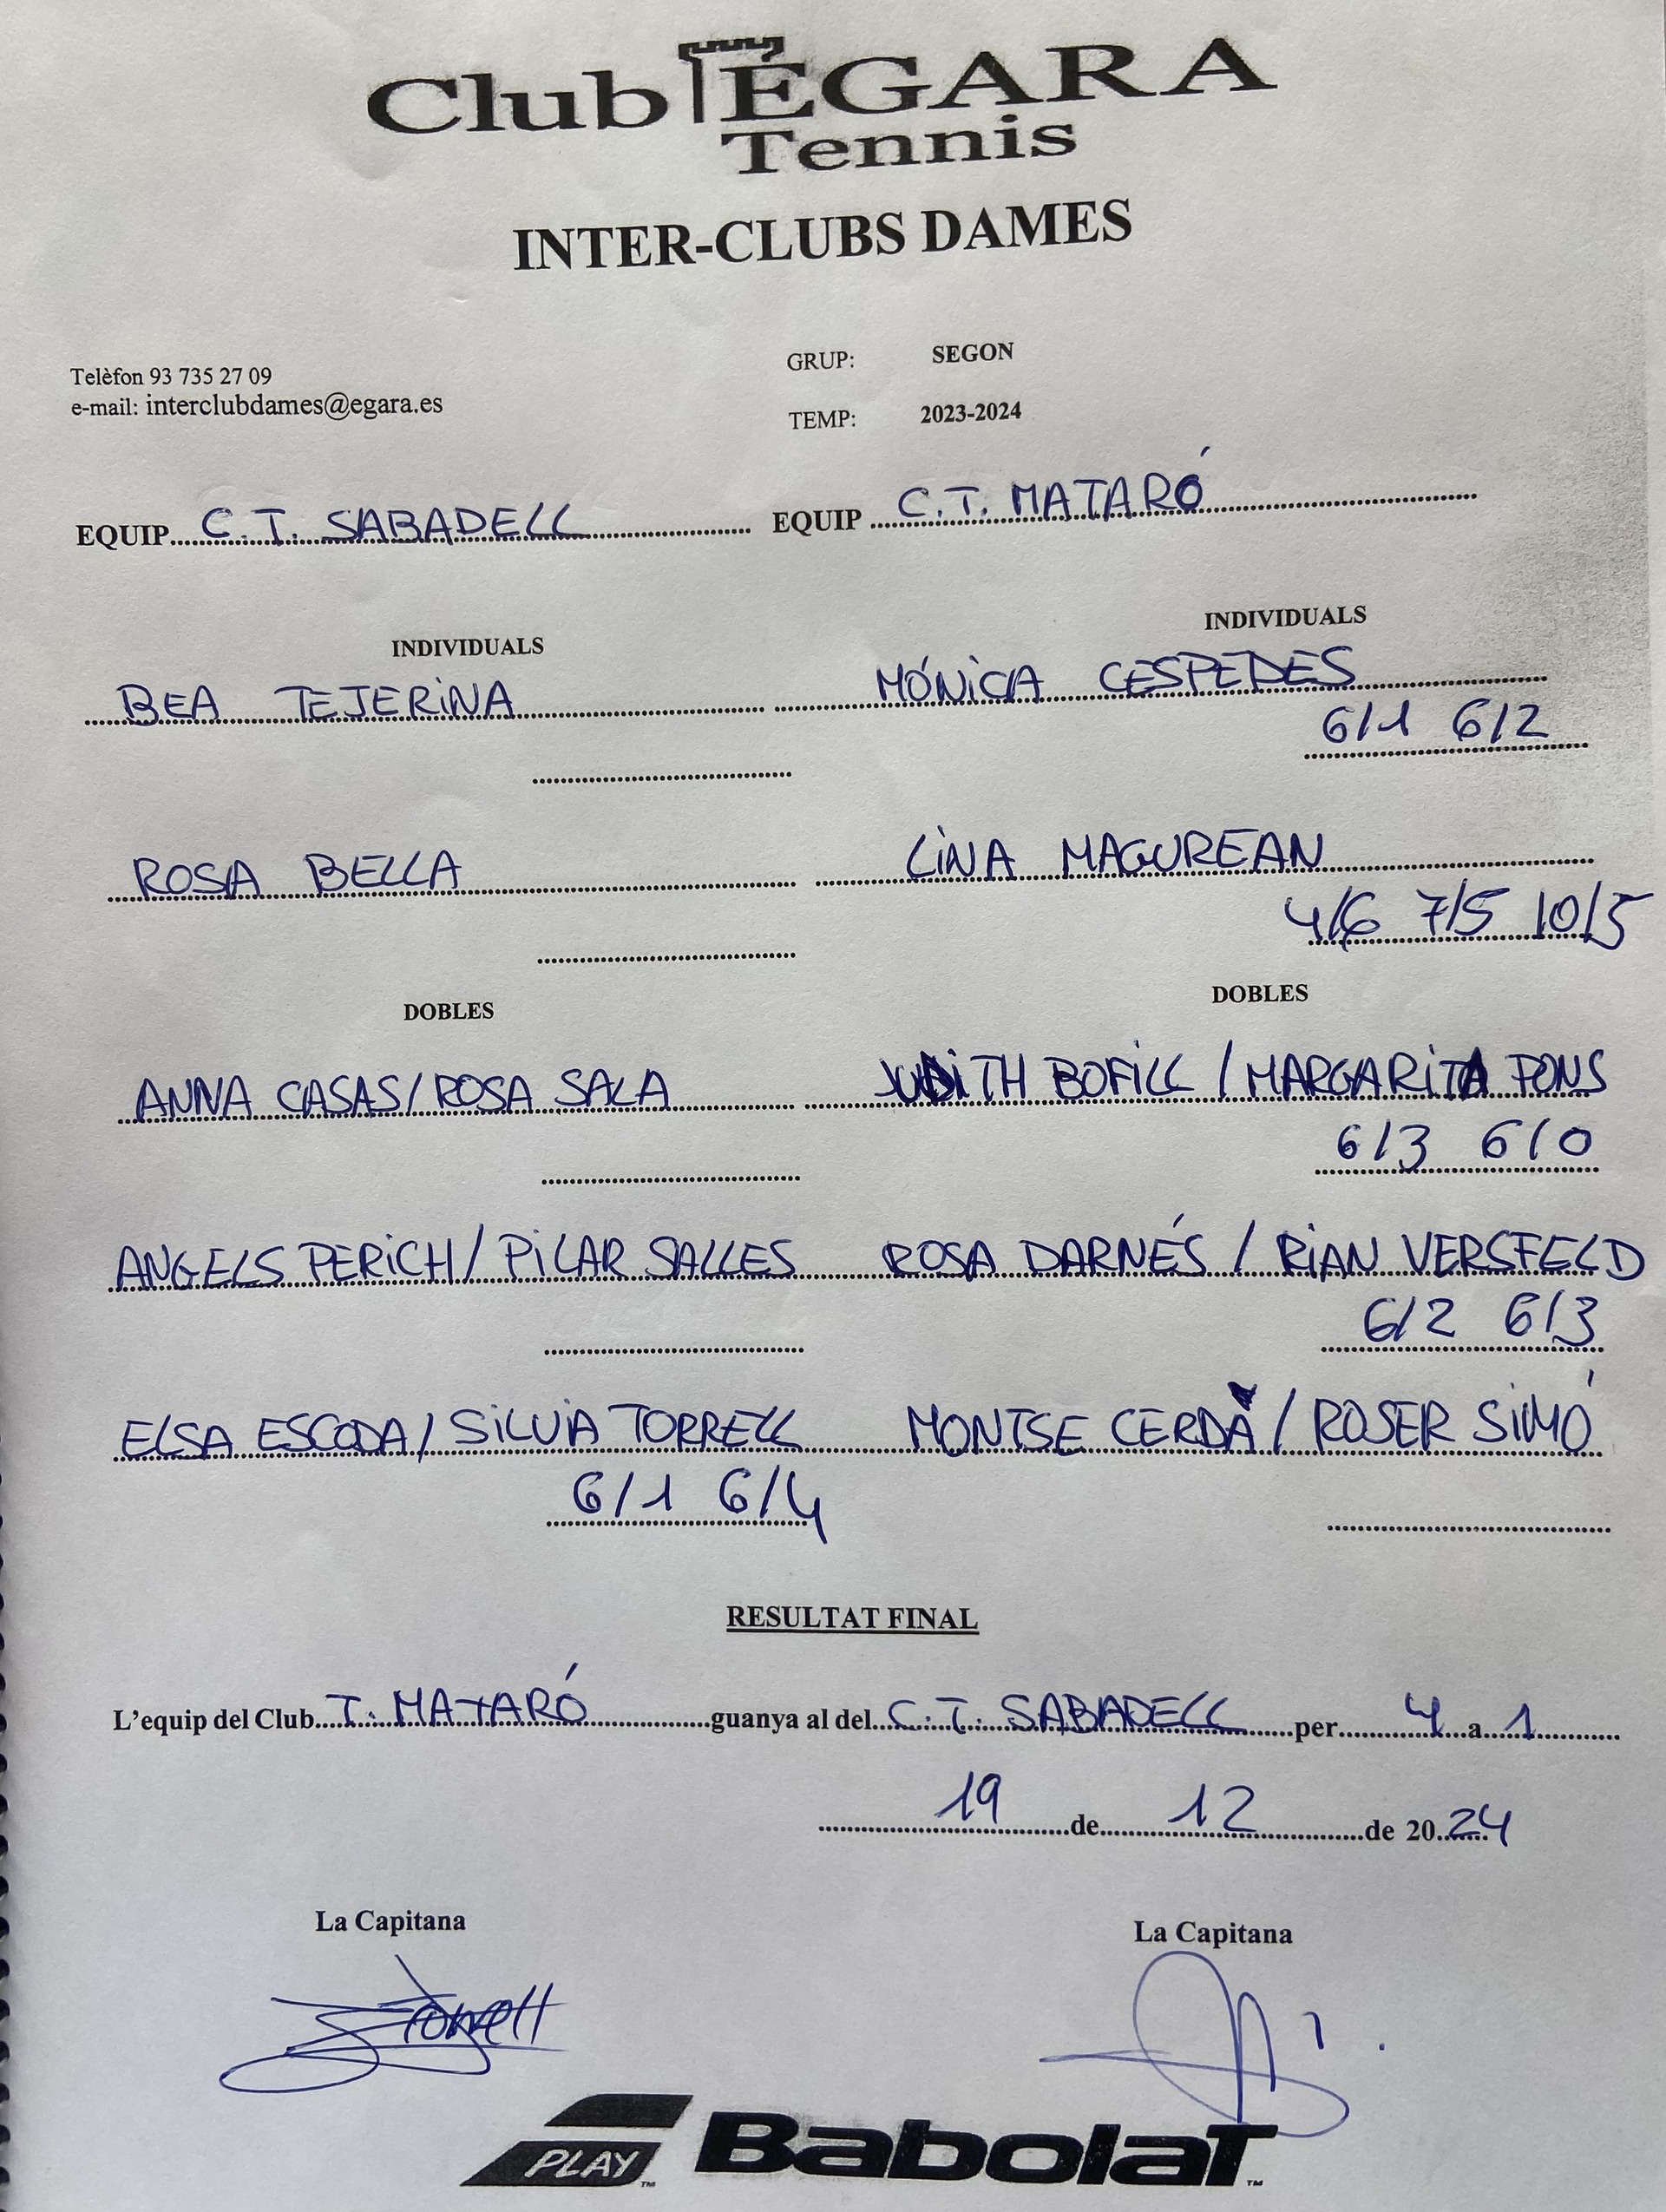 Club ÈGARA
Tennis
INTER-CLUBS DAMES
Telèfon 93 735 27 09
e-mail: interclubdames@egara.es
GRUP: SEGON
TEMP: 2023-2024
EQUIP C.T. SABADELL EQUIP C.T. MATARÓ
INDIVIDUALS INDIVIDUALS
BEA TEJERINA MÓNICA CESPEDES
6/1 6/2
ROSA BELLA LINA MAGUREAN
4/6 7/5 10/5
DOBLES DOBLES
ANNA CASAS/ROSA SALA JUDITH BOFILL / MARGARITA PONS
6/3 6/0
ANGELS PERICH/ PILAR SALLES ROSA DARNÉS / RIAN VERSFELD
6/2 6/3
ELSA ESCODA/ SILVIA TORRELL MONTSE CERDÀ / ROSER SIMÓ
6/1 6/4
RESULTAT FINAL
L'equip del Club T. MATARÓ guanya al del C.T. SABADELL per 4 a 1
19 de 12 de 2024
La Capitana La Capitana
PLAY Babolat